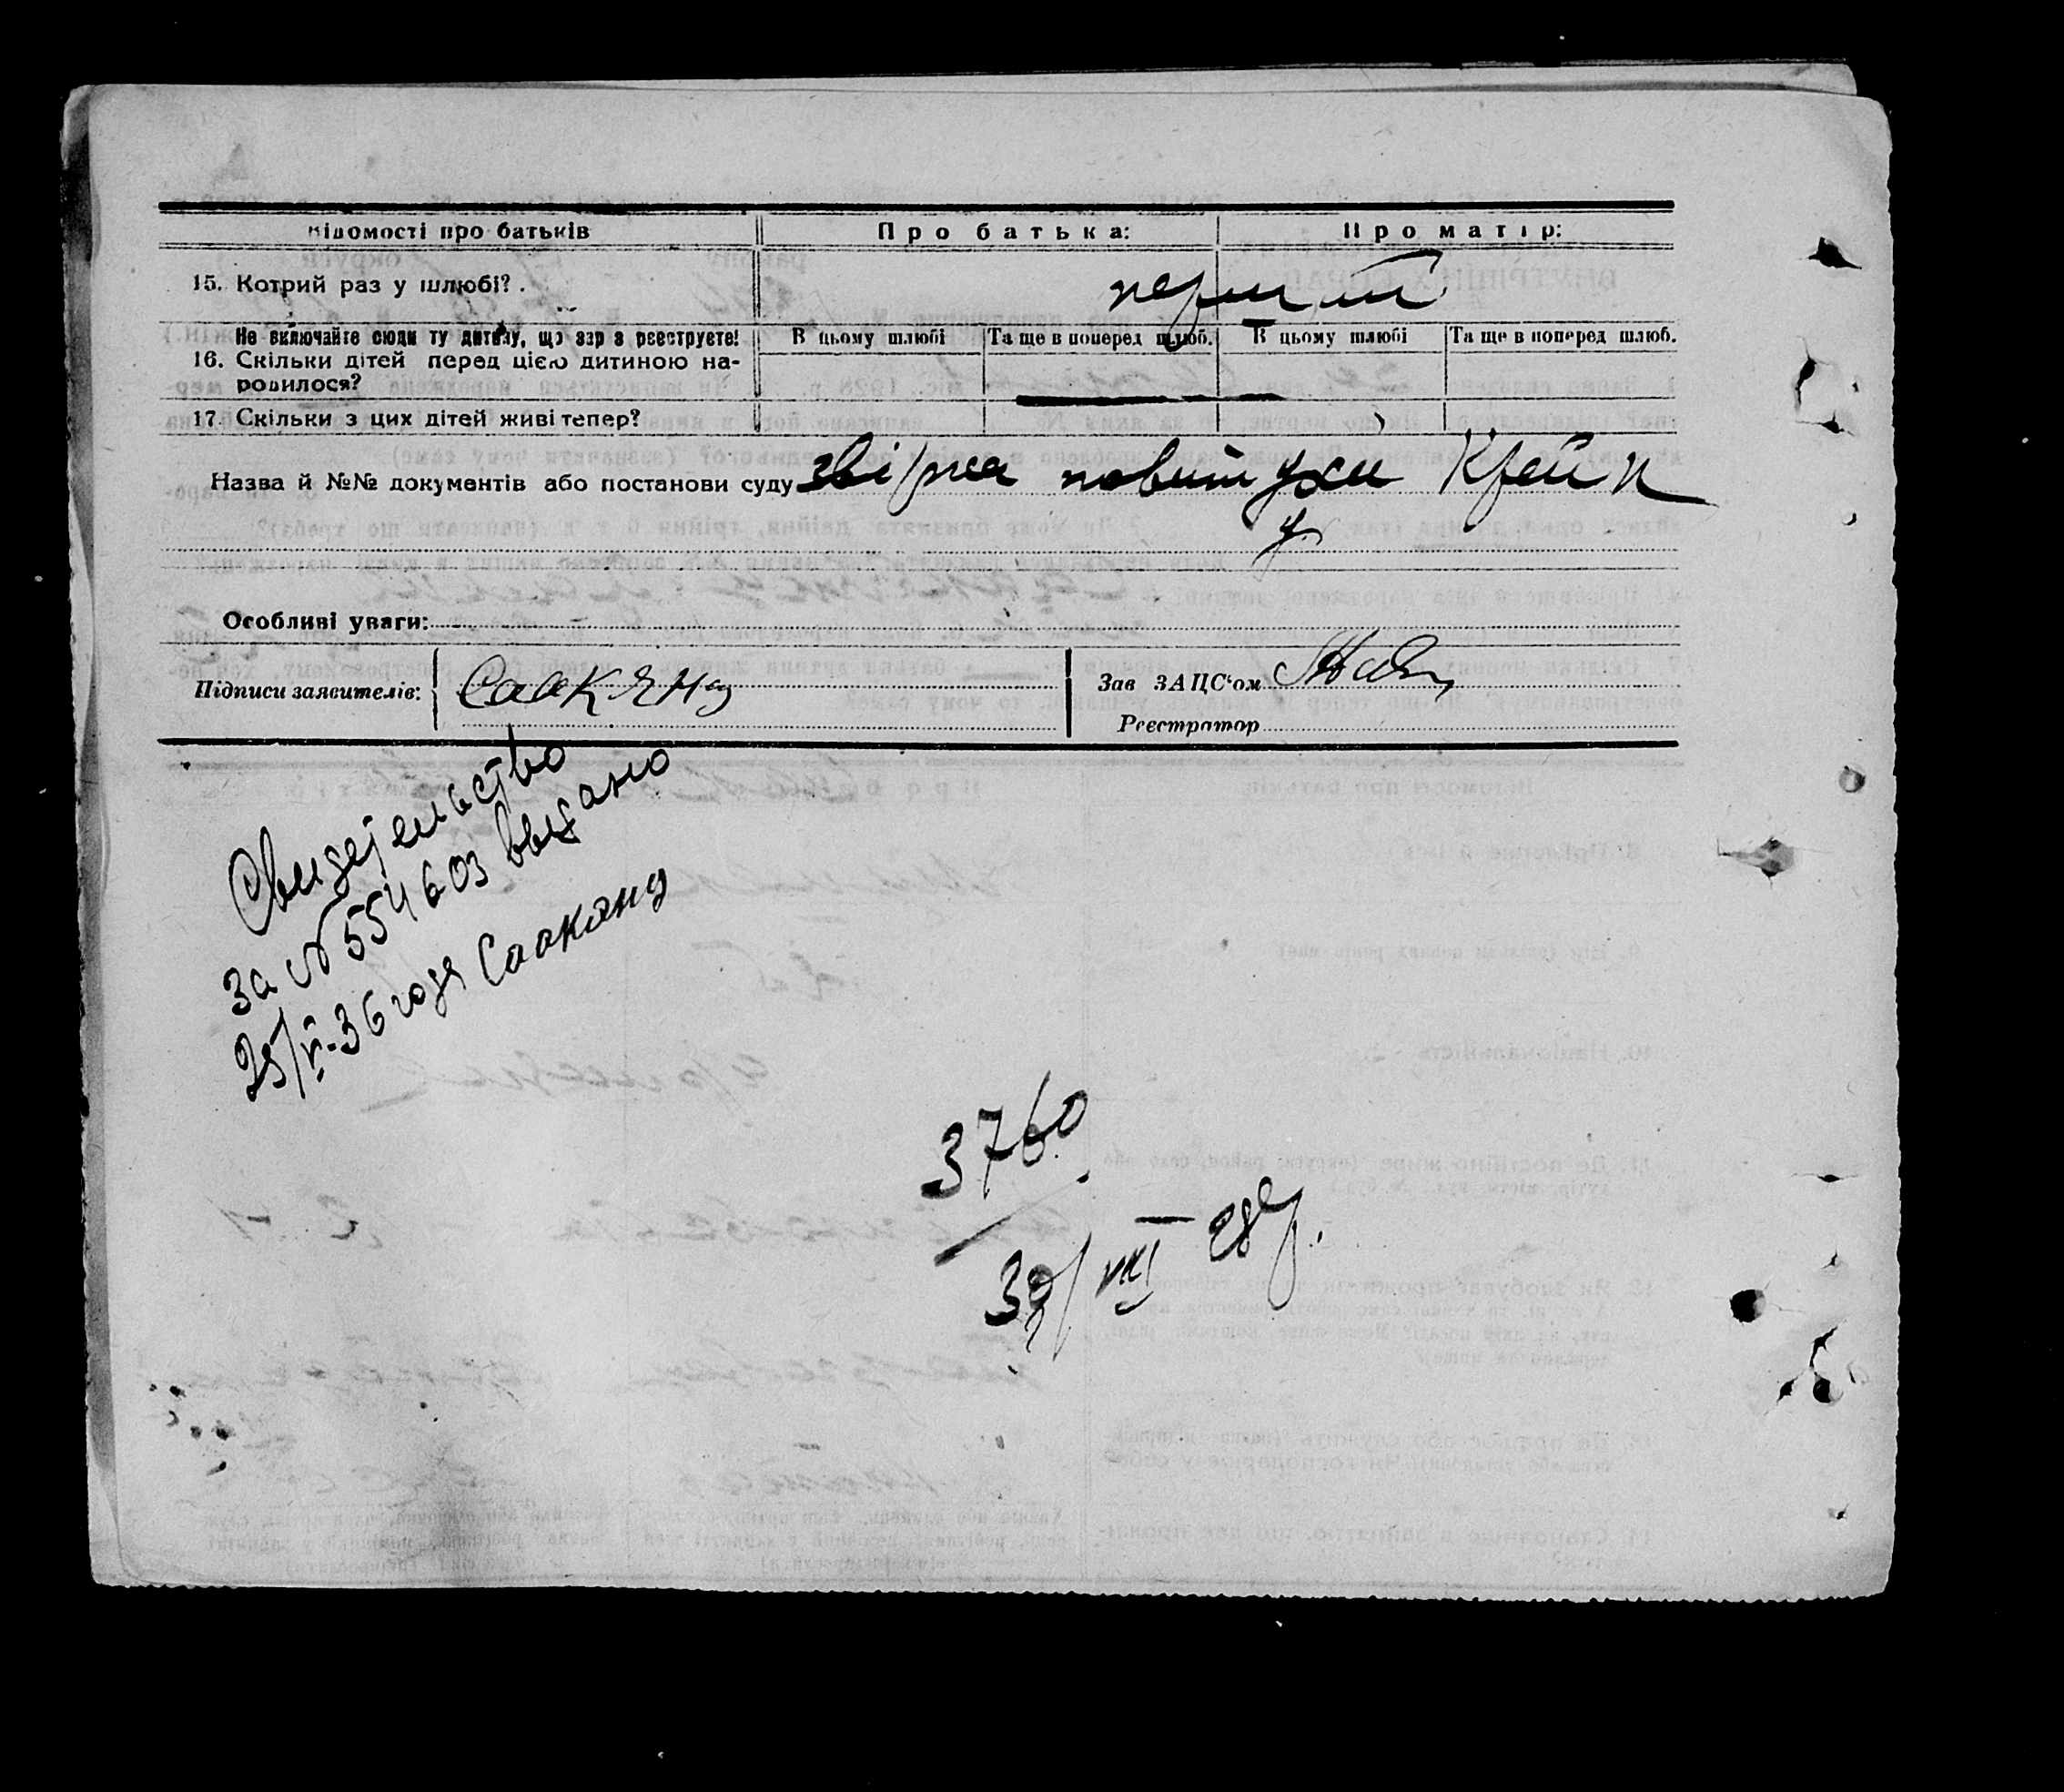 Відомості про батьків
Про батька:
Про матір:
15. Котрий раз у шлюбі?
перший
Не включайте сюди ту дитину, що зар з реєструєте!
В цьому шлюбі
Та ще в поперед шлюб.
В цьому шлюбі
Та ще в поперед шлюб.
16. Скільки дітей перед цією дитиною на-
родилося?
17. Скільки з цих дітей живі тепер?
Назва й №№ документів або постанови суду
повитухи
Особливі уваги:
Підписи заявителів:
Саакянц
Зав ЗАЦС‘ом
Реєстратор
Свидетельство
за № 554603 выдано
25/VI-36 года Саакянц
3760
VIII 28р.